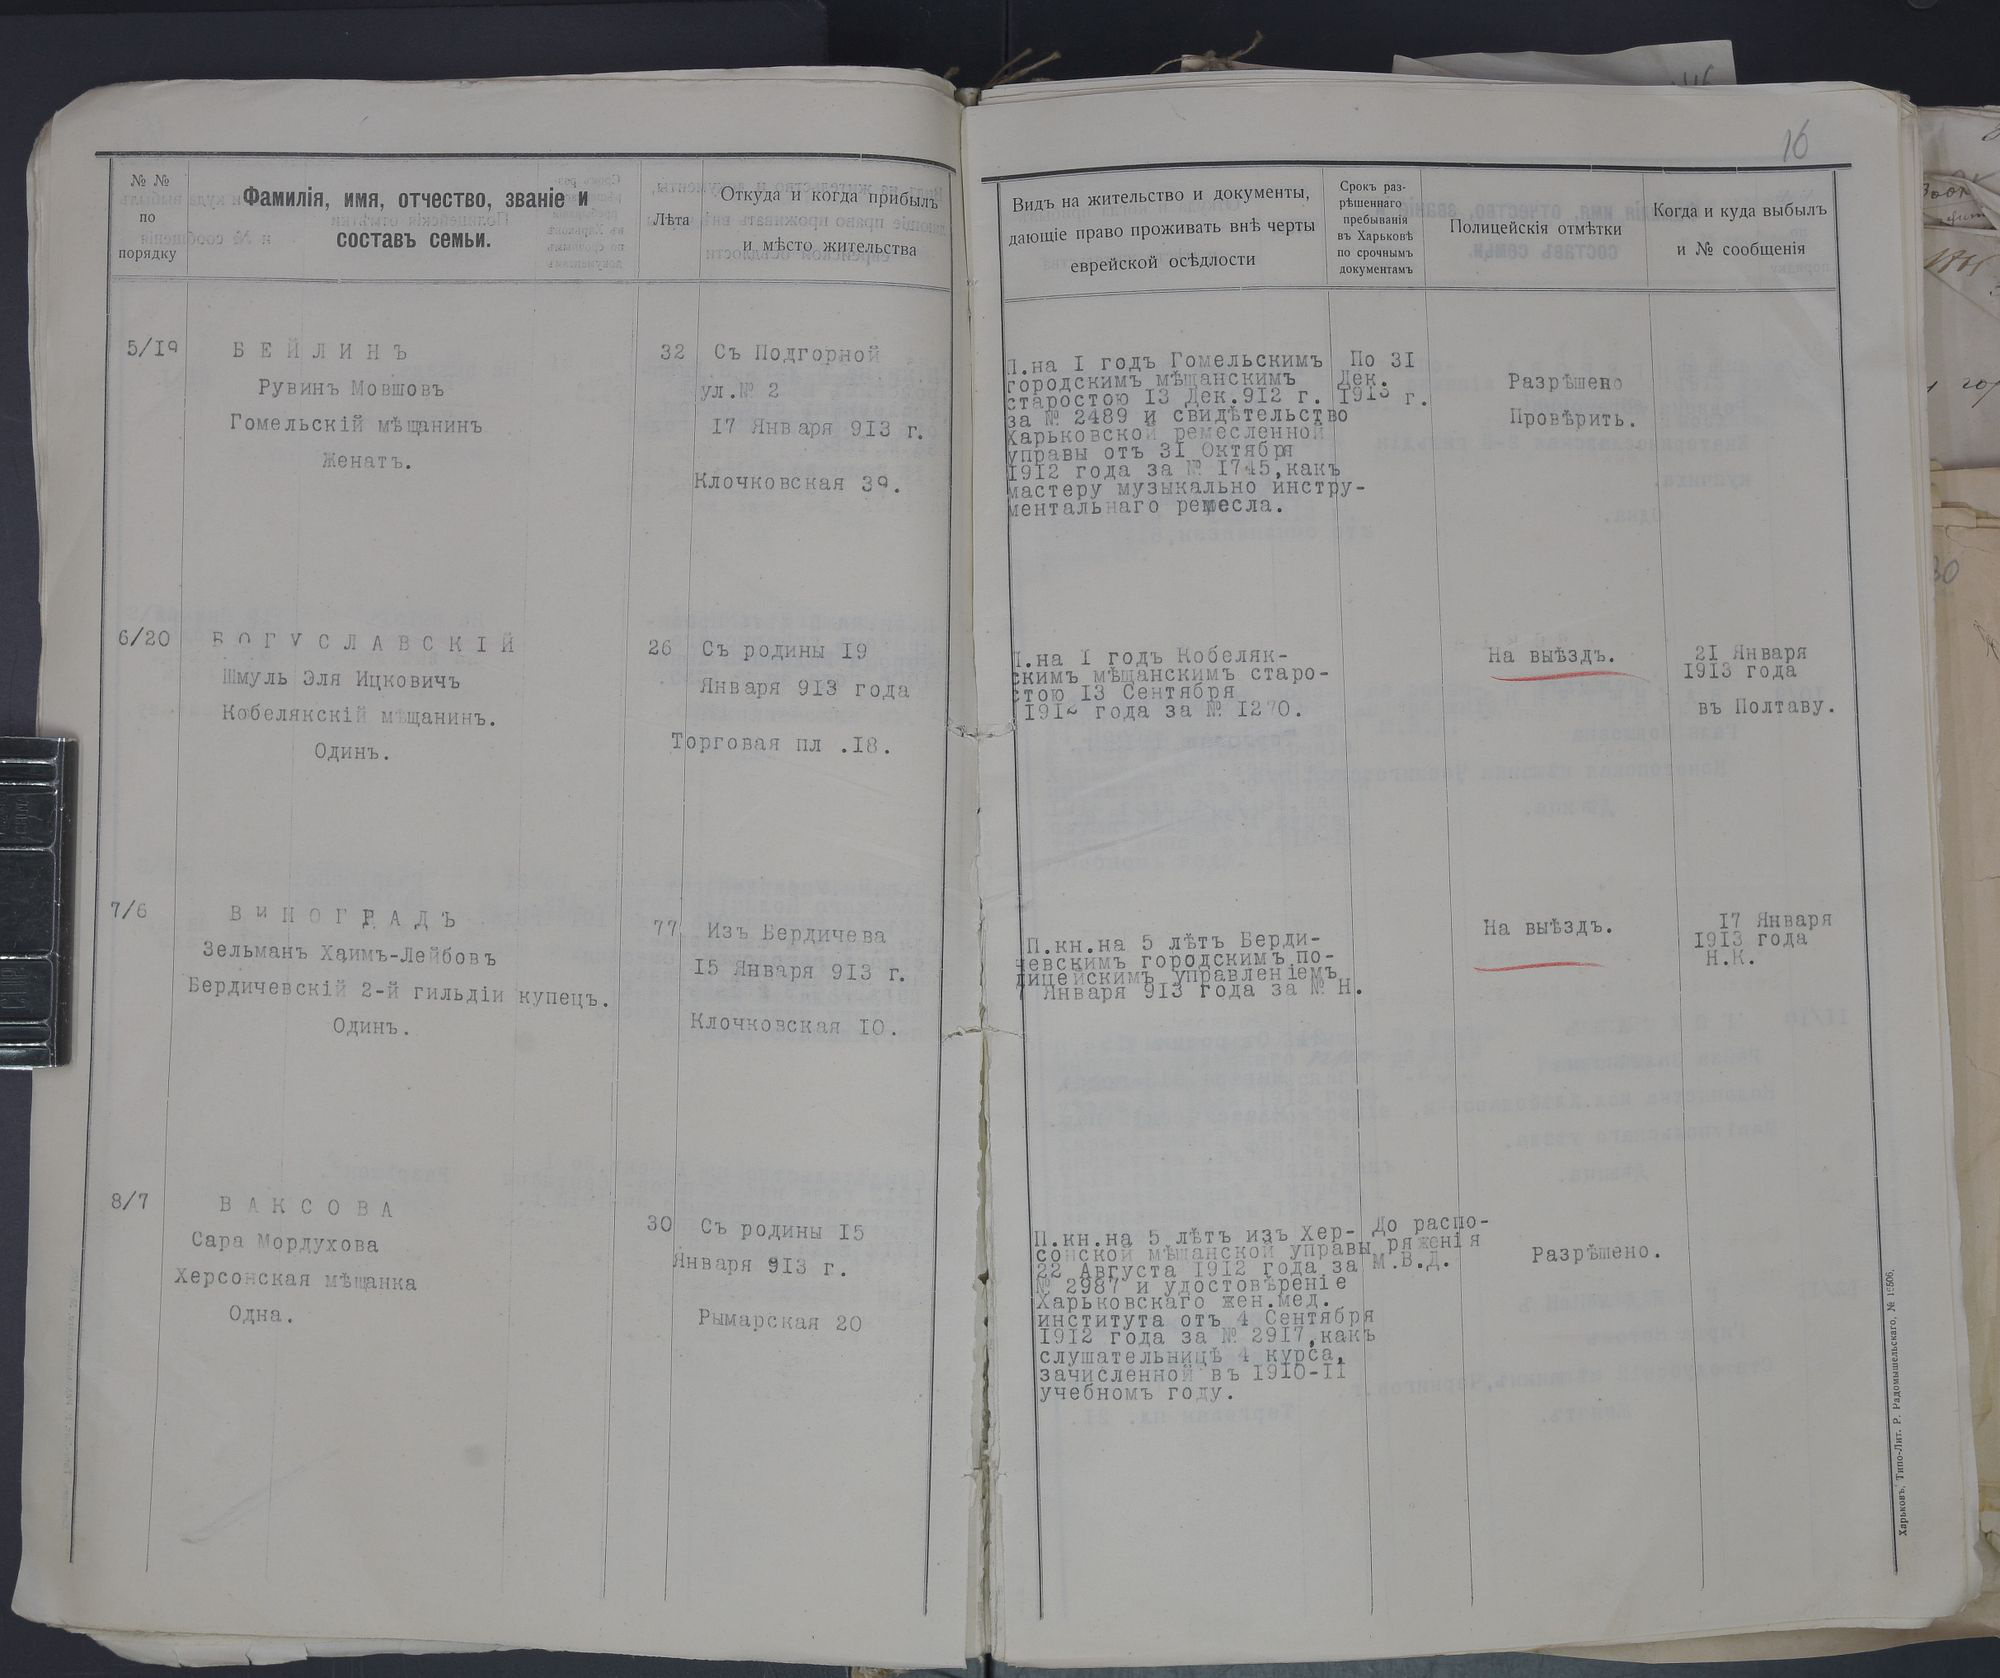 16
№ №
по
порядку
Фамилія, имя, отчество, званіе и
составъ семьи.
Лѣта
Откуда и когда прибылъ
и мѣсто жительства
Видъ на жительство и документы,
дающіе право проживать внѣ черты
еврейской осѣдлости
Срокъ раз-
рѣшеннаго
пребыванія
въ Харьковѣ
по срочнымъ
документамъ
Полицейскія отмѣтки
Когда и куда выбылъ
и № сообщенія
5/19
БЕЙЛИНЪ
Рувинъ Мовшовъ
Гомельскій мѣщанинъ
Женатъ.
32
Съ Подгорной
ул.№ 2
17 Января 913 г.
Клочковская 39.
П.на I годъ Гомельскимъ
городскимъ мѣщанскимъ
старостою 13 Дек.912 г.
за № 2489 и свидѣтельство
Харьковской ремесленной
управы отъ 31 Октября
1912 года за № 1745,какъ
мастеру музыкально инстру-
ментальнаго ремесла.
По 31
Дек.
1913 г.
Разрѣшено
Провѣрить.
6/20
БОГУСЛАВСКІЙ
Шмуль Эля Ицковичъ
Кобелякскій мѣщанинъ.
Одинъ.
26
Съ родины 19
Января 913 года
Торговая пл .18.
П.на I годъ Кобеляк-
скимъ мѣщанскимъ старо-
стою 13 Сентября
1912 года за № 1270.
На выѣздъ.
21 Января
1913 года
въ Полтаву.
7/6
ВИНОГРАДЪ
Зельманъ Хаимъ-Лейбовъ
Бердичевскій 2-й гильдіи купецъ.
Одинъ.
77
Изъ Бердичева
15 Января 913 г.
Клочковская 10.
П.кн.на 5 лѣтъ Берди-
чевскимъ городскимъ по-
лицейскимъ управленіемъ
7 Января 913 года за № Н.
На выѣздъ.
17 Января
1913 года
Н.К.
8/7
ВАКСОВА
Сара Мордухова
Херсонская мѣщанка
Одна.
30
Съ родины 15
Января 913 г.
Рымарская 20
П.кн.на 5 лѣтъ изъ Хер-
сонской мѣщанской управы
22 Августа 1912 года за
№ 2987 и удостовѣреніе
Харьковскаго жен.мед.
института отъ 4 Сентября
1912 года за № 2917,какъ
слушательницѣ 4 курса,
зачисленной въ 1910-11
учебномъ году.
До распо-
ряженія
М.В.Д.
Разрѣшено.
Харьковъ, Типо-Лит. Р. Радомышельскаго, № 15506.